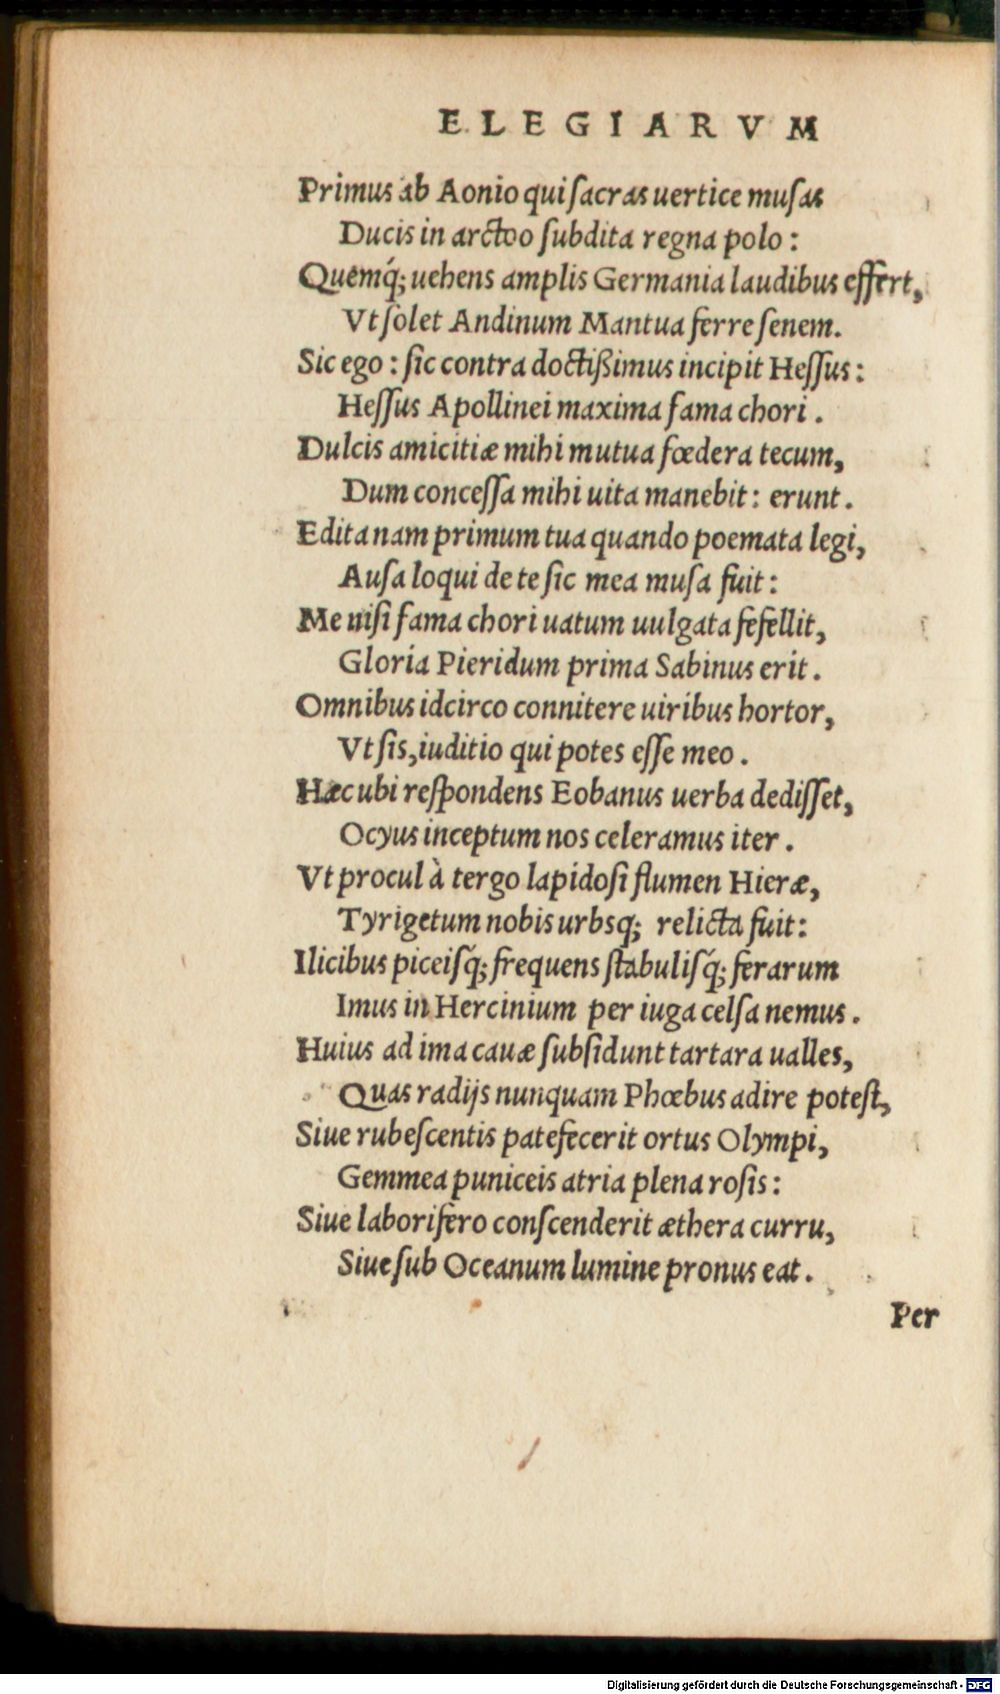 ELEGIARVM
Primus ab Aonio qui ſacras uertice muſas
Ducis in arctoo ſubdita regna polo :
Quemq́; uehens amplis Germania laudibus effert,
Vt ſolet Andinum Mantua ferre ſenem.
Sic ego : ſic contra doctißimus incipit Heſſus :
Heſſus Apollinei maxima fama chori .
Dulcis amicitiæ mihi mutua fœdera tecum,
Dum conceſſa mihi uita manebit : erunt .
Edita nam primum tua quando poemata legi,
Auſa loqui de te ſic mea muſa fuit :
Me niſi fama chori uatum uulgata fefellit,
Gloria Pieridum prima Sabinus erit .
Omnibus idcirco connitere uiribus hortor,
Vt ſis, iuditio qui potes eſſe meo .
Hæc ubi reſpondens Eobanus uerba dediſſet,
Ocyus inceptum nos celeramus iter .
Vt procul à tergo lapidoſi flumen Hieræ,
Tyrigetum nobis urbsq; relicta fuit :
Ilicibus piceisq́; frequens ſtabulisq́; ferarum
Imus in Hercinium per iuga celſa nemus .
Huius ad ima cauæ ſubſidunt tartara ualles,
Quas radijs nunquam Phœbus adire poteſt,
Siue rubeſcentis patefecerit ortus Olympi,
Gemmea puniceis atria plena roſis :
Siue laborifero conſcenderit æthera curru,
Siue ſub Oceanum lumine pronus eat .
Per
Digitalisierung gefördert durch die Deutsche Forschungsgemeinschaft - DFG